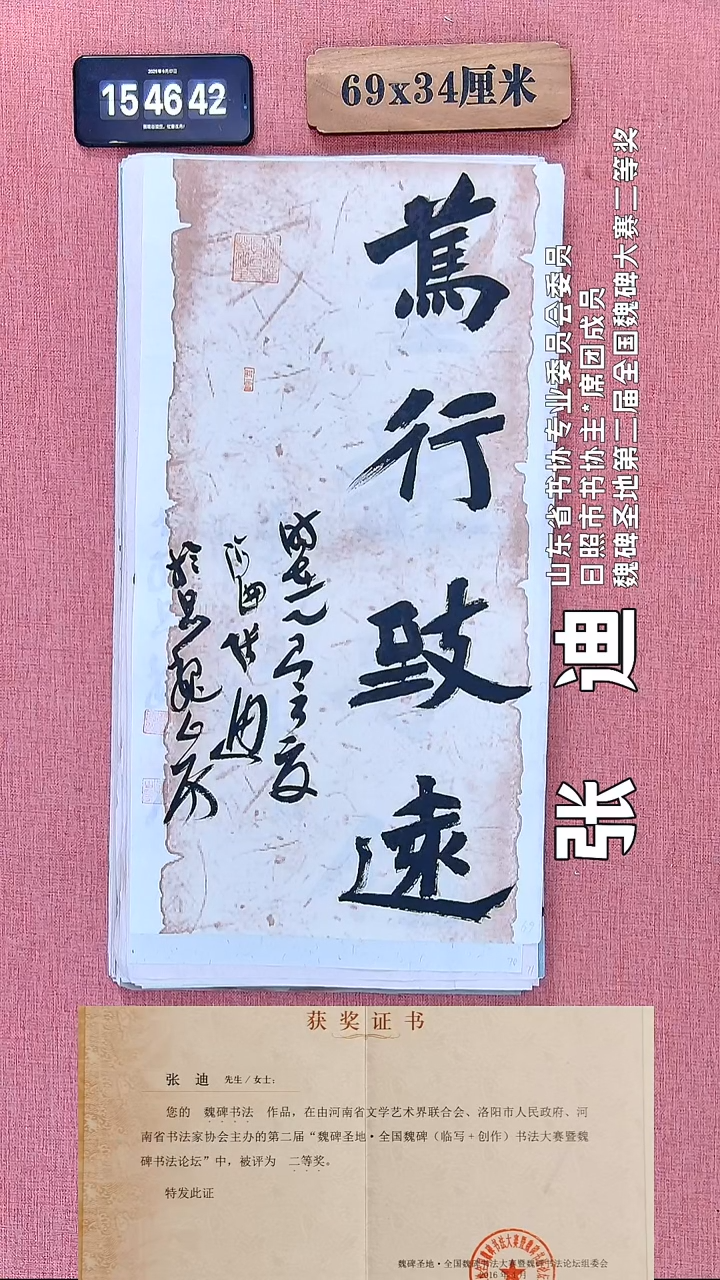 15 46 42
69x34厘米
篤行致遠
时在乙巳之夏
张迪
山东省书协专业委员会委员
日照市书协主*席团成员
魏碑圣地第二届全国魏碑大赛二等奖
张 迪
获奖证书
张 迪 先生/女士:
您的 魏碑书法 作品，在由河南省文学艺术界联合会、洛阳市人民政府、河
南省书法家协会主办的第二届“魏碑圣地·全国魏碑（临写+创作）书法大赛暨魏
碑书法论坛”中，被评为 二等奖。
特发此证
魏碑圣地·全国魏碑书法大赛暨魏碑书法论坛组委会
2016年1月